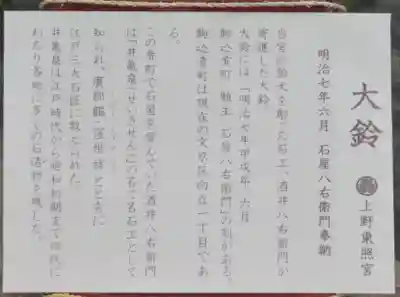 大鈴
上野東照宮
明治七年六月 石屋八右衛門奉納
当宮の狛犬を彫った石工、酒井八右衛門が
寄進した大鈴
大鈴には「明治七年甲戌年 六月
駒込肴町 願主 石屋八右衛門」の刻がある。
駒込肴町は現在の文京区向丘一丁目であ
る。
この肴町で石屋を営んでいた酒井八右衛門
は「井亀泉(せいきせん)」の名で名石工として
知られ、廣群鶴、窪世祥とともに
江戸三大石匠に数えられた。
井亀泉は江戸時代から昭和初期まで四代に
わたり各地に多くの石造物を残した。